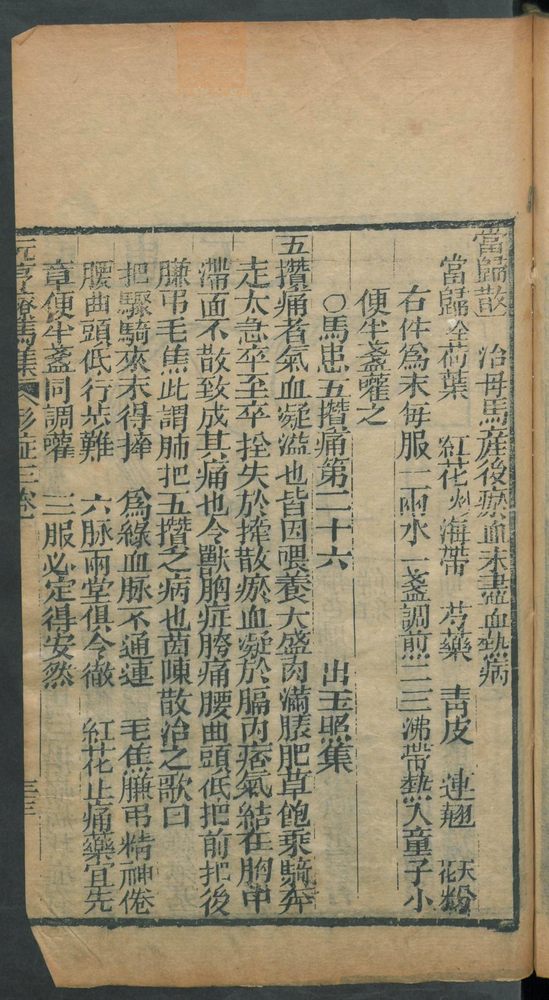 當歸散　治母馬産後瘀血未盡血熱病
當歸全荷葉　紅花炒海帶　芍藥　青皮　連翹　天花粉
右件為末每服二兩水一盞調煎二三沸帶熱入童子小
便半盞嚾之
○馬患五攢痛第二十六　出玉照集
五攢痛者氣血凝滋也皆因喂養大盛肉滿膘肥草飽乘騎奔
走太急卒至卒拴失於搾散瘀血凝於膈內痞氣結在胸中
滯而不散致成其痛也令獸胸症胯痛腰曲頭低把前把後
膁弔毛焦此謂肺把五攢之病也茵陳散治之歌曰
把驟騎來未得擇　為緣血脉不通連　毛焦膁弔精神倦
腰曲頭低行步難　六脉兩堂俱令徹　紅花止痛藥宜先
童便半盞同調嚾　三服必定得安然
元亨療馬集　形症三卷　三三